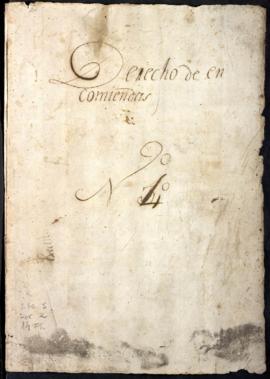 Derecho de en
comiendas
9º
N 4º